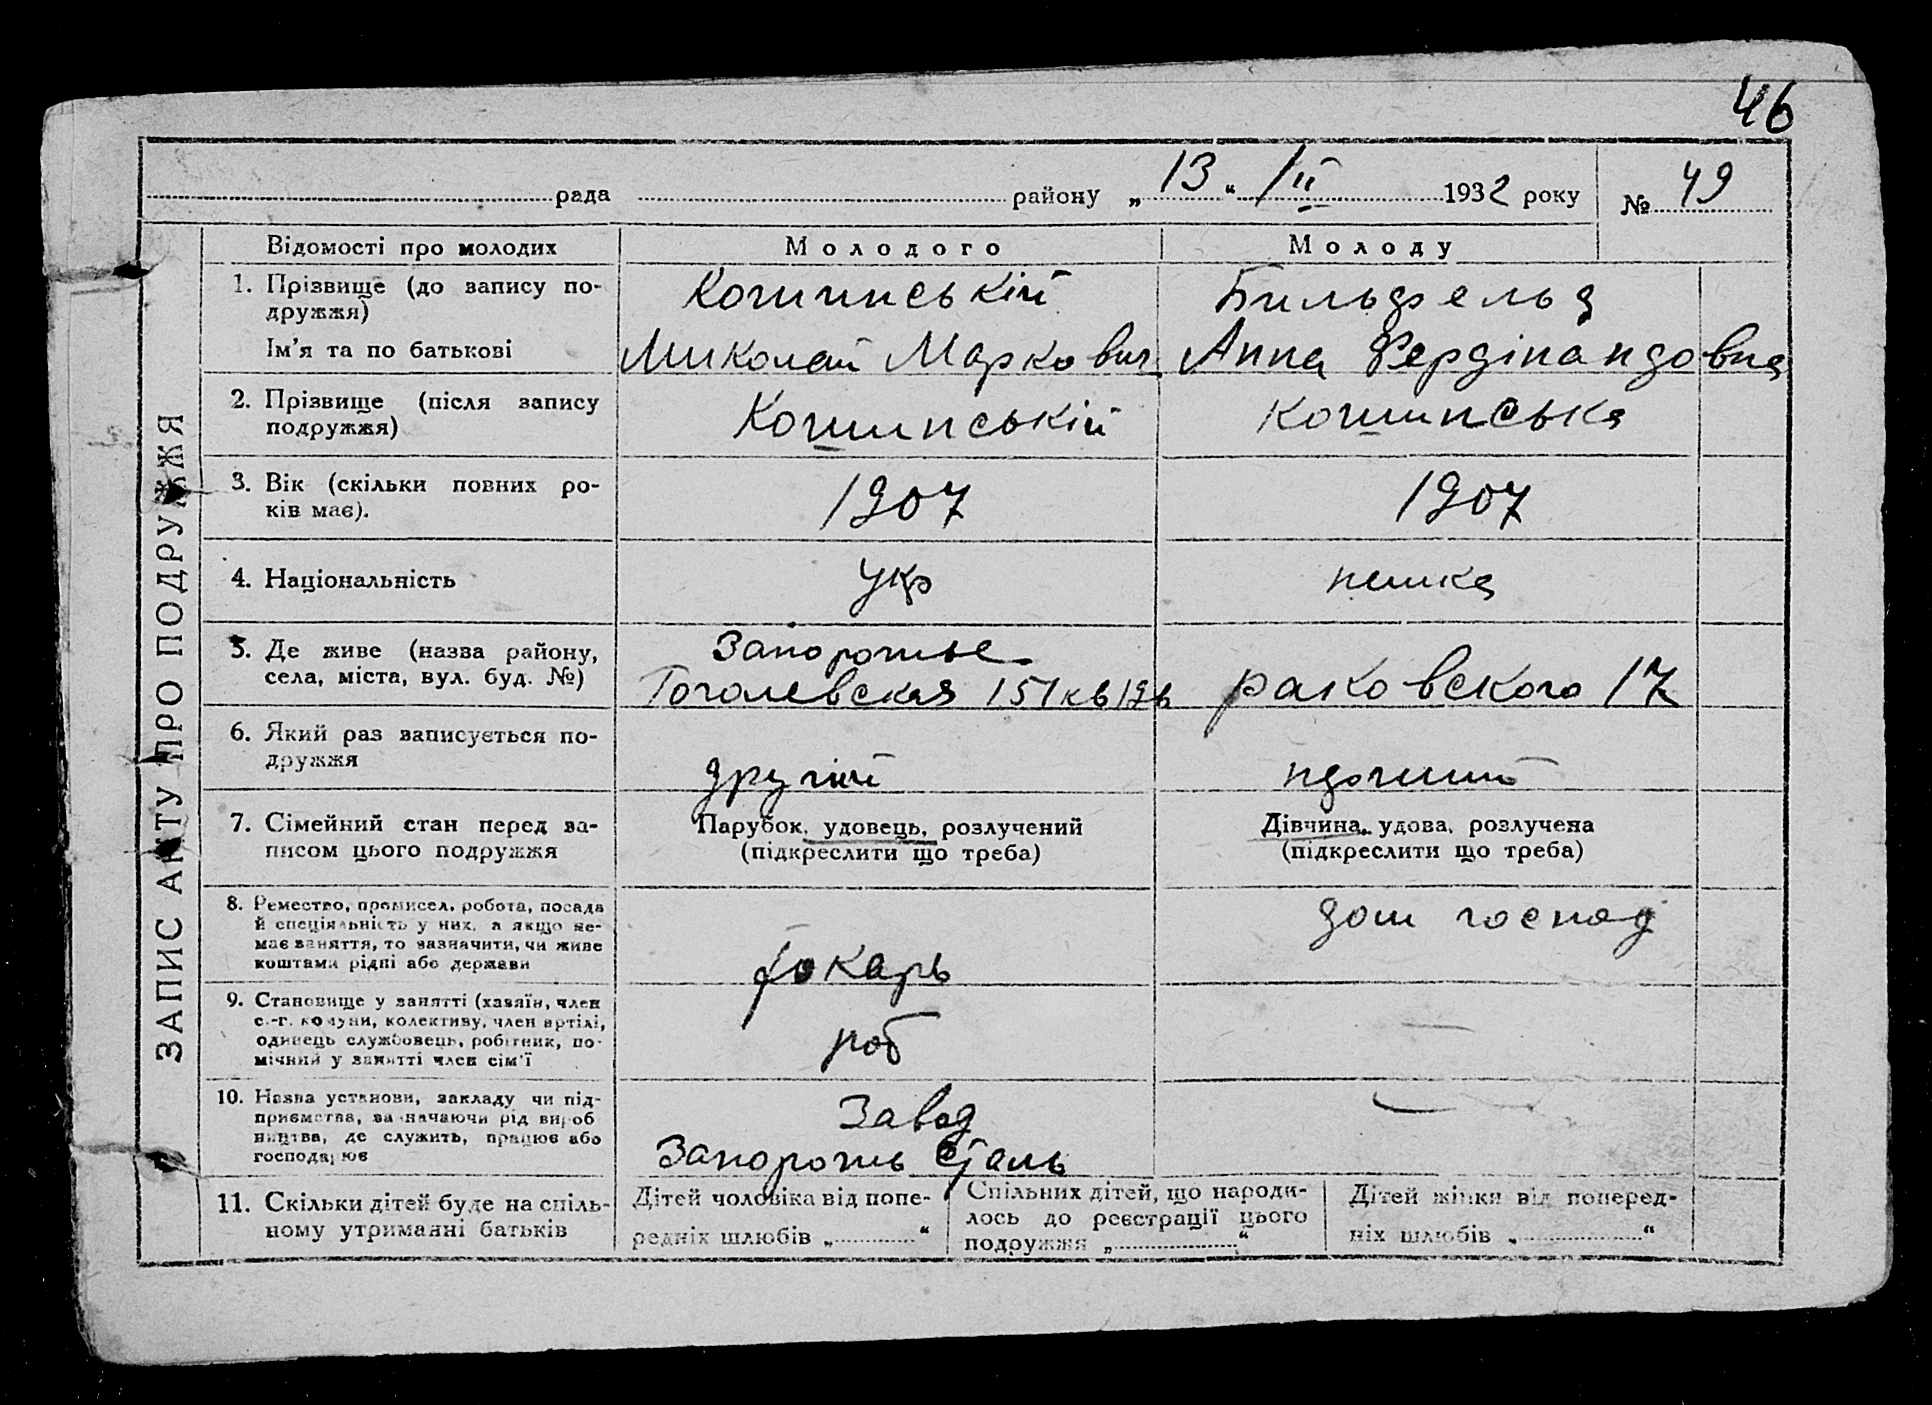 46
рада району „ 13 “ /II 1932 року № 49
ЗАПИС АКТУ ПРО ПОДРУЖЖЯ
Відомості про молодих Молодого Молоду
1. Прізвище (до запису по-
дружжя)
Бильдфельд
Ім'я та по батькові
Миколай Маркович Анна Фердінандовна
2. Прізвище (після запису
подружжя)
3. Вік (скільки повних ро-
ків має).
1907 1907
4. Національність
укр немка
5. Де живе (назва району,
села, міста, вул. буд. №)
Запорожье
Гоголевская 151 кв раковского 17
6. Який раз записується по-
дружжя
другий
7. Сімейний стан перед за-
писом цього подружжя
Парубок, удовець, розлучений
(підкреслити що треба)
Дівчина, удова, розлучена
(підкреслити що треба)
8. Ремество, промисел, робота, посада
й спеціяльність у них, а якщо не-
має заняття, то зазначити, чи живе
коштами рідні або держави
токарь
дом господ
9. Становище у занятті (хазяїн, член
с.-г. комуни, колективу, член артілі,
одинець службовець, робітник, по-
мічний у занятті член сім'ї
роб —
10. Назва установи, закладу чи під-
приємства, зазначаючи рід вироб
ництва, де служить, працює або
господарює
Завод
Запорожсталь
—
11. Скільки дітей буде на спіль-
ному утриманні батьків
Дітей чоловіка від попе-
редніх шлюбів „ “
Спільних дітей, що народи-
лось до реєстрації цього
подружжя „ “
Дітей жінки від поперед-
ніх шлюбів „ “